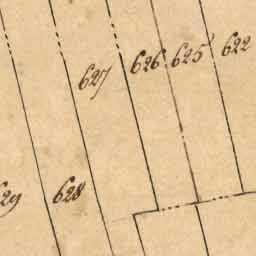 622
625
626
627
628
629